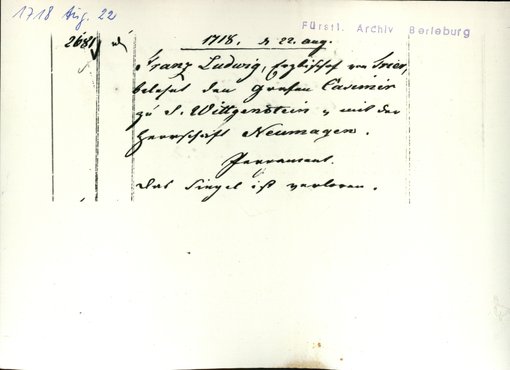 1718 Aug. 22
Fürstl. Archiv Berleburg
2681
1718, d. 22. aug.
Franz Ludwig, Erzbischof von Trier,
belehnt den Grafen Casimir
zu S. Wittgenstein mit der
Herrschaft Neumagen.
Pergament.
Das Siegel ist verloren.